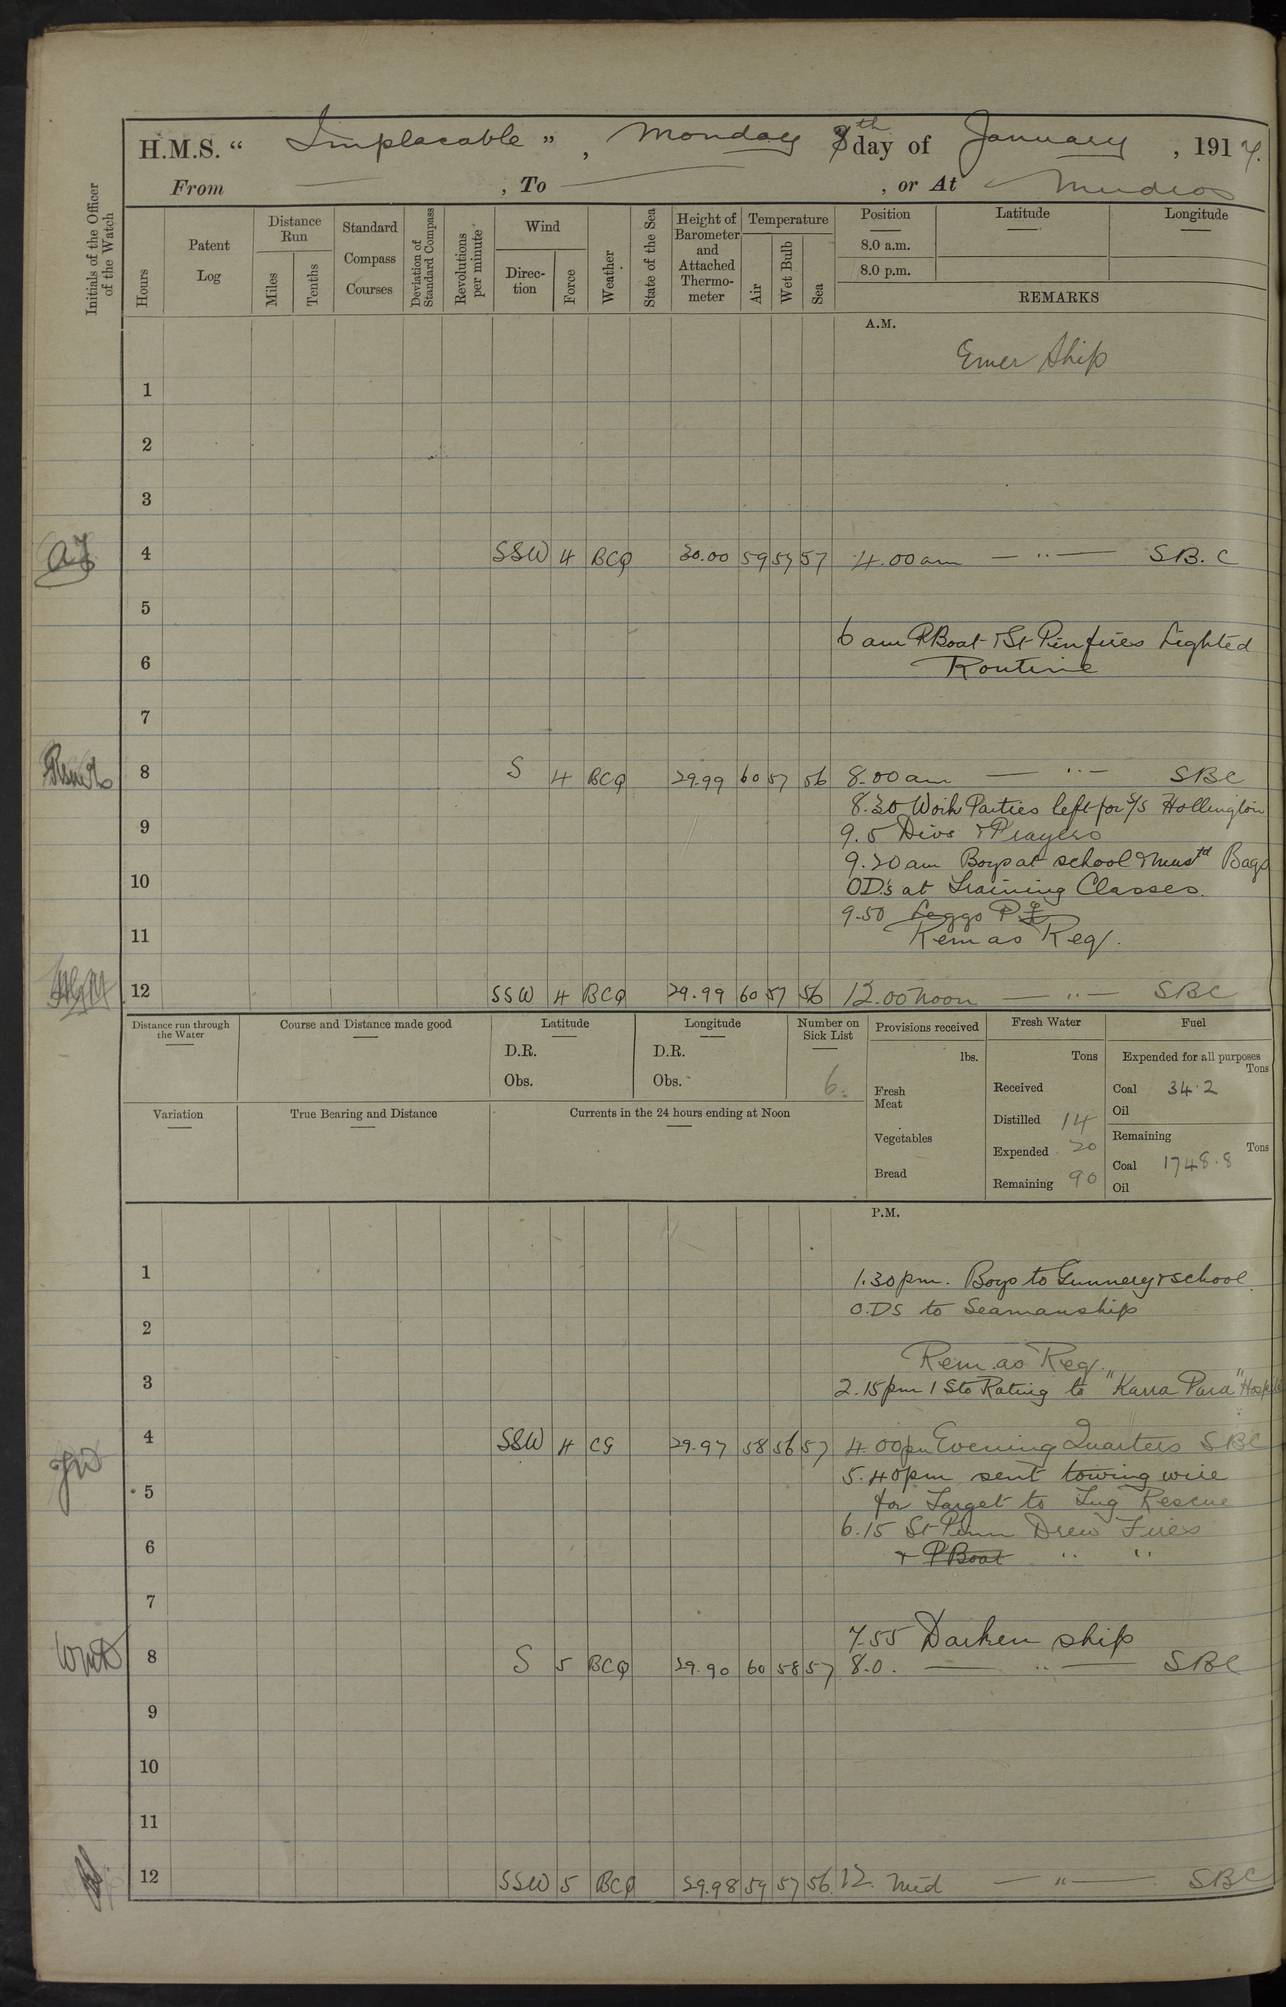 H.M.S. " Implacable " , Monday 8th day of January , 1917.
From — , To — , or At Mudros
Initials of the Officer of the Watch
Hours
Patent Log
Distance Run
Miles
Tenths
Standard Compass Courses
Deviation of Standard Compass
Revolutions per minute
Wind
Direc-tion
Force
Weather
State of the Sea
Height of Barometer and Attached Thermo-meter
Temperature
Air
Wet Bulb
Sea
Position
8.0 a.m.
8.0 p.m.
Latitude
Longitude
REMARKS
A.M.
Emer Ship
1
2
3
4 SSW 4 BCQ 30.00 59 57 57 4.00 am — " — S.B.C
5
6 am PBoat & St Pin fires Lighted
6 Routine
7
8 S 4 BCQ 29.99 60 57 56 8.00 am — " — SBC
8.30 Work Parties left for S/S Hollington
9 9.5 Divs & Prayers
9.20 am Boys at school & Mustd Bags
10 OD's at Training Classes.
9.50
11 Rem as Req.
12 SSW 4 BCQ 29.99 60 57 56 12.00 noon — " — SBC
Distance run through the Water
Course and Distance made good
Latitude
D.R.
Obs.
Longitude
D.R.
Obs.
Number on Sick List
6.
Provisions received
lbs.
Fresh Meat
Vegetables
Bread
Fresh Water
Tons
Received
Distilled 14
Expended 20
Remaining 90
Fuel
Expended for all purposes
Tons
Coal 34.2
Oil
Remaining
Tons
Coal 1748.8
Oil
Variation
True Bearing and Distance
Currents in the 24 hours ending at Noon
P.M.
1 1.30 pm. Boys to Gunnery & school
2 O.Ds to Seamanship
Rem as Req.
3 2.15 pm 1 Sto Rating to "Karra Para"
4 SSW 4 CG 29.97 58 56 57 4.00 pm Evening Quarters SBC
5.40 pm sent towing wire
5 for Target to Tug Rescue
6.15 St Pinn Drew Fires
6 & PBoat " "
7
7.55 Darken ship
8 S 5 BCQ 29.90 60 58 57 8.0. — " — SBC
9
10
11
12 SSW 5 BCQ 29.98 59 57 56 12. Mid — " — SBC